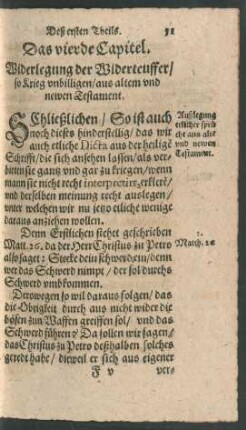 Deß ersten Theils. 31
Das vierde Capitel.
Widerlegung der Widerteuffer/
so Krieg vnbilligen/ aus altem vnd
newen Testament.
SChließlichen/ So ist auch
noch dieses hinderstellig/ das wir
auch etliche Dicta aus der heilige
Schrifft/ die sich ansehen lassen/ als ver-
bieten sie gantz vnd gar zu kriegen/ wenn
mann sie nicht recht interpretirt, erklert/
vnd derselben meinung recht ausleget/
vnter welchen wir nu jetzo etliche wenige
daraus anziehen wollen.
Außlegung
etlicher sprü
che aus alte
vnd newen
Testament.
Denn Erstlichen stehet geschrieben
Matt. 26. da der Herr Christus zu Petro
also saget: Stecke dein schwerd ein/ denn
wer das Schwerd nimpt/ der sol durchs
Schwerd vmbkommen.
1.
Matth. 26
Derowegen so wil daraus folgen/ das
die Obrigkeit durch aus nicht wider die
bösen zun Waffen greiffen sol/ vnd das
Schwerd führen? Da sollen wir sagen/
das Christus zu Petro deßhalben solches
geredt habe/ dieweil er sich aus eigener
F v ver-